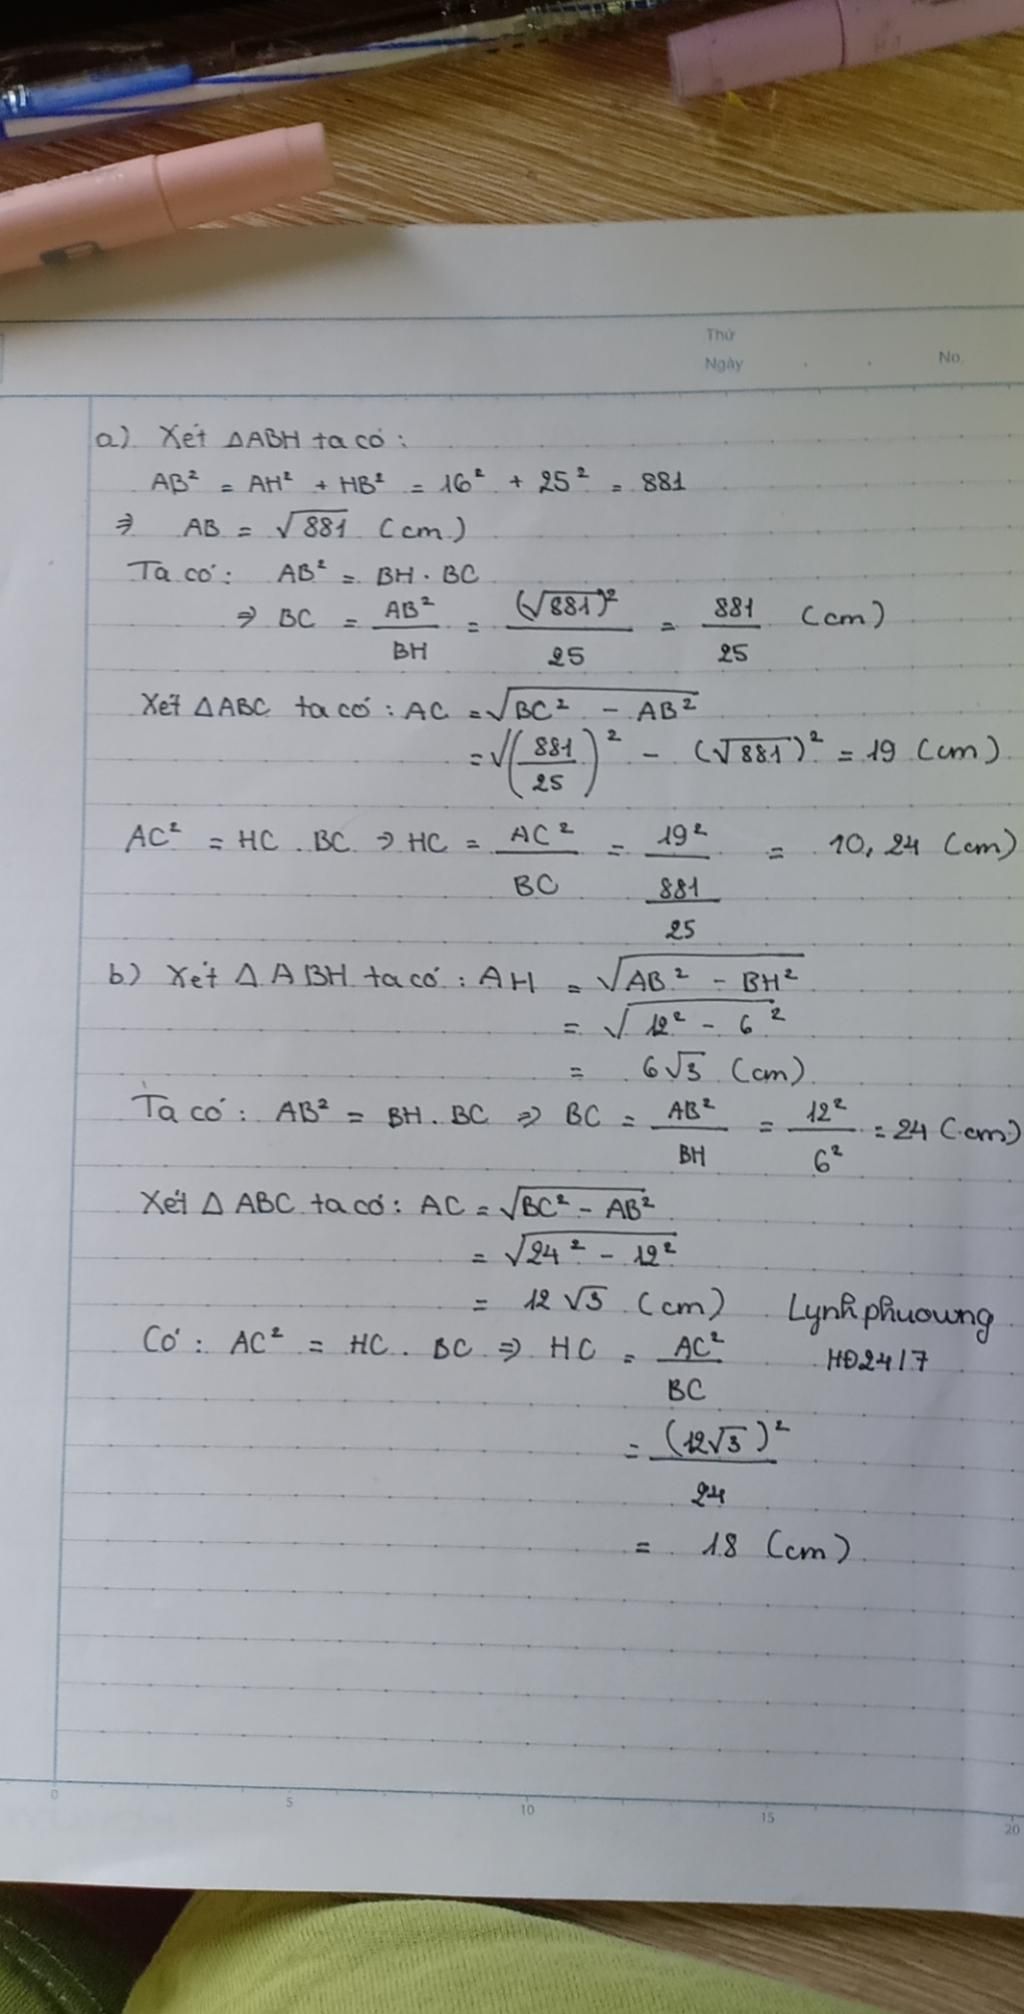 Thứ
Ngày . . No.
a) Xét ΔABH ta có:
AB² = AH² + HB² = 16² + 25² = 881
⇒ AB = √881 (cm)
Ta có: AB² = BH . BC
⇒ BC = AB²/BH = (√881)²/25 = 881/25 (cm)
Xét ΔABC ta có: AC = √(BC² - AB²)
= √((881/25)² - (√881)²) = 19 (cm)
AC² = HC . BC ⇒ HC = AC²/BC = 19²/(881/25) = 10,24 (cm)
b) Xét ΔABH ta có: AH = √(AB² - BH²)
= √(12² - 6²)
= 6√3 (cm)
Ta có: AB² = BH. BC ⇒ BC = AB²/BH = 12²/6² = 24 (cm)
Xét ΔABC ta có: AC = √(BC² - AB²)
= √(24² - 12²)
= 12√3 (cm)
Lynhphuowng
HĐ2417
Có: AC² = HC . BC ⇒ HC = AC²/BC
= (12√3)²/24
= 18 (cm)
0 5 10 15 20